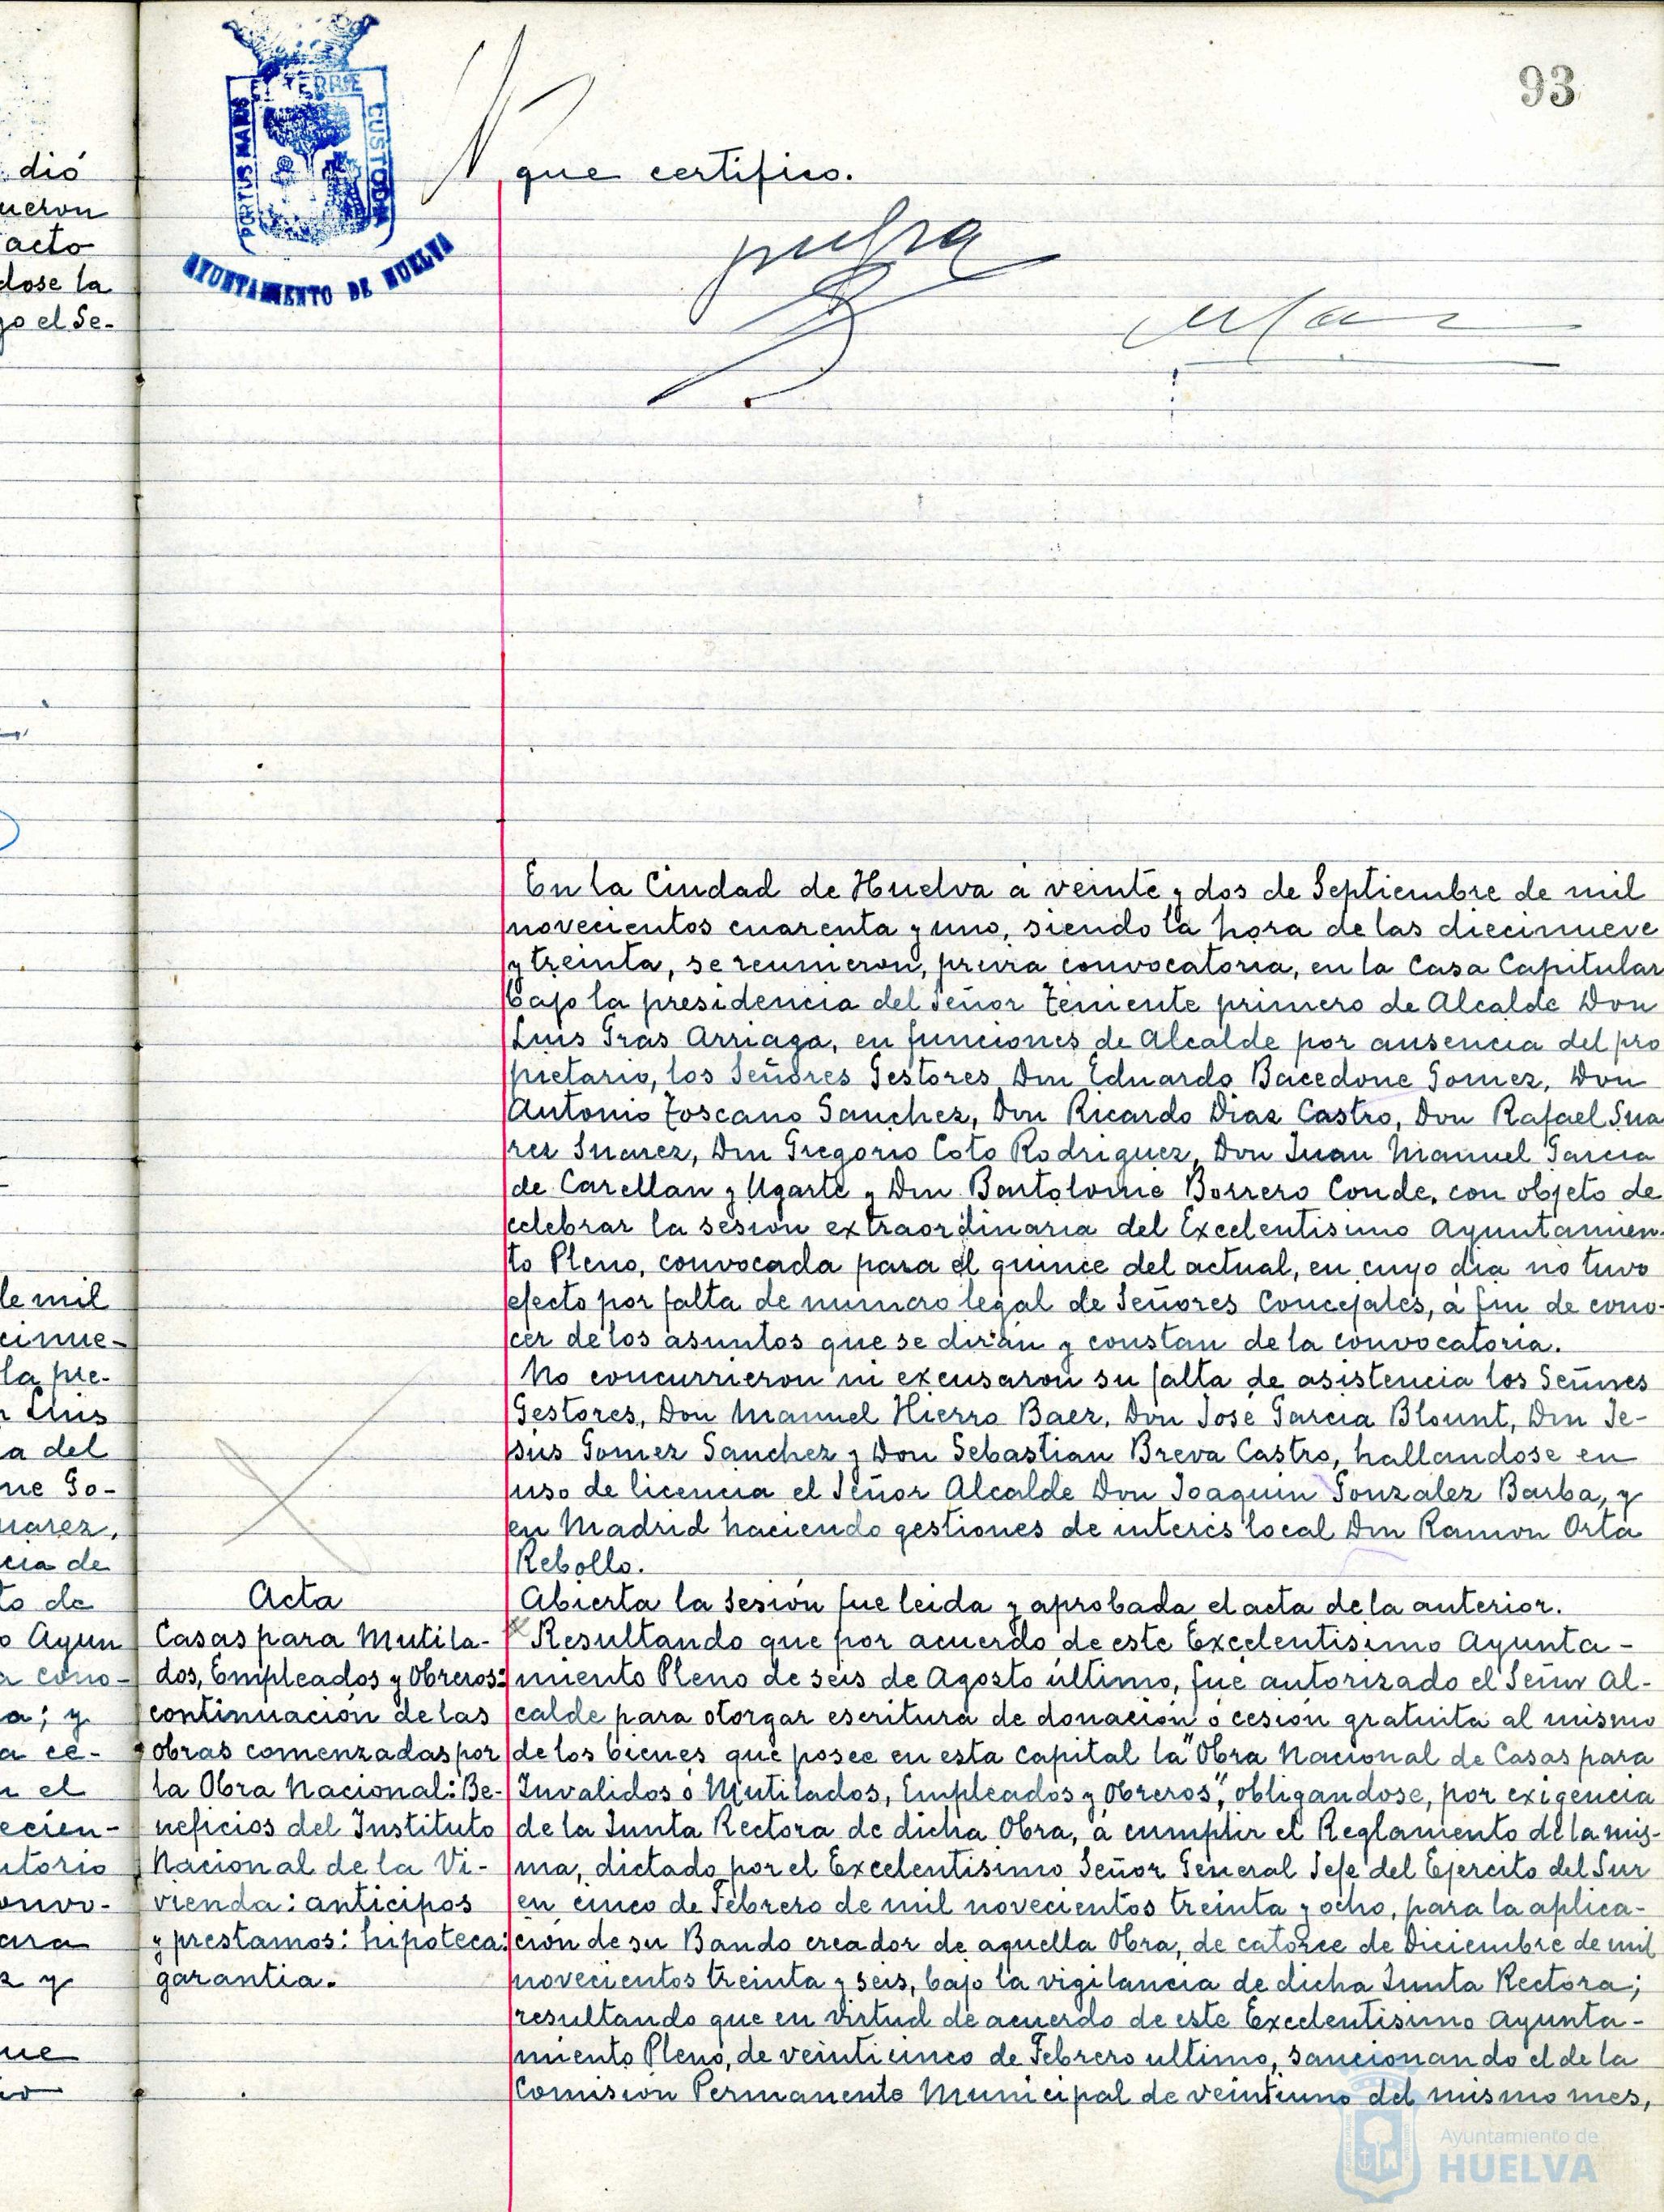 93
PORTUS MARIS ET TERRAE CUSTODIA
AYUNTAMIENTO DE HUELVA
que certifico.
dió
ueron
acto
dose la
go el Se-
le mil
cinue-
la pre-
Luis
a del
ne Go-
uarez,
cia de
to de
o Ayun
a cono-
a; y
a ce-
n el
ecien-
utorio
onvo-
ara
z y
ue
En la Ciudad de Huelva á veinte y dos de Septiembre de mil
novecientos cuarenta y uno, siendo la hora de las diecinueve
y treinta, se reunieron, previa convocatoria, en la Casa Capitular
bajo la presidencia del Señor Teniente primero de Alcalde Don
Luis Gras Arriaga, en funciones de Alcalde por ausencia del pro
pietario, los Señores Gestores Don Eduardo Bacedone Gomez, Don
Antonio Toscano Sanchez, Don Ricardo Diaz Castro, Don Rafael Sua
rez Suarez, Don Gregorio Coto Rodriguez, Don Juan Manuel Garcia
de Carellan y Ugarte y Don Bartolomé Borrero Conde, con objeto de
celebrar la sesión extraordinaria del Excelentisimo Ayuntamien-
to Pleno, convocada para el quince del actual, en cuyo dia no tuvo
efecto por falta de número legal de Señores Concejales, á fin de cono-
cer de los asuntos que se dirán y constan de la convocatoria.
No concurrieron ni excusaron su falta de asistencia los Señores
Gestores, Don Manuel Hierro Baez, Don José Garcia Blount, Don Je-
sus Gomez Sanchez y Don Sebastian Breva Castro, hallandose en
uso de licencia el Señor Alcalde Don Joaquin Gonzalez Barba, y
en Madrid haciendo gestiones de interés local Don Ramon Orta
Rebollo.
Acta
Abierta la sesión fue leida y aprobada el acta de la anterior.
Casas para Mutila-
dos, Empleados y Obreros:
continuación de las
obras comenzadas por
la Obra Nacional: Be-
neficios del Instituto
Nacional de la Vi-
vienda: anticipos
y prestamos: hipoteca:
garantia.
Resultando que por acuerdo de este Excelentisimo Ayunta-
miento Pleno de seis de Agosto último, fué autorizado el Señor Al-
calde para otorgar escritura de donación ó cesión gratuita al mismo
de los bienes que posee en esta capital la "Obra Nacional de Casas para
Invalidos ó Mutilados, Empleados y Obreros", obligandose, por exigencia
de la Junta Rectora de dicha Obra, á cumplir el Reglamento de la mis-
ma, dictado por el Excelentisimo Señor General Jefe del Ejercito del Sur
en cinco de Febrero de mil novecientos treinta y ocho, para la aplica-
ción de su Bando creador de aquella Obra, de catorce de Diciembre de mil
novecientos treinta y seis, bajo la vigilancia de dicha Junta Rectora;
resultando que en virtud de acuerdo de este Excelentisimo Ayunta-
miento Pleno, de veinticinco de Febrero ultimo, sancionando el de la
Comisión Permanente Municipal de veintiuno del mismo mes,
Ayuntamiento de
HUELVA